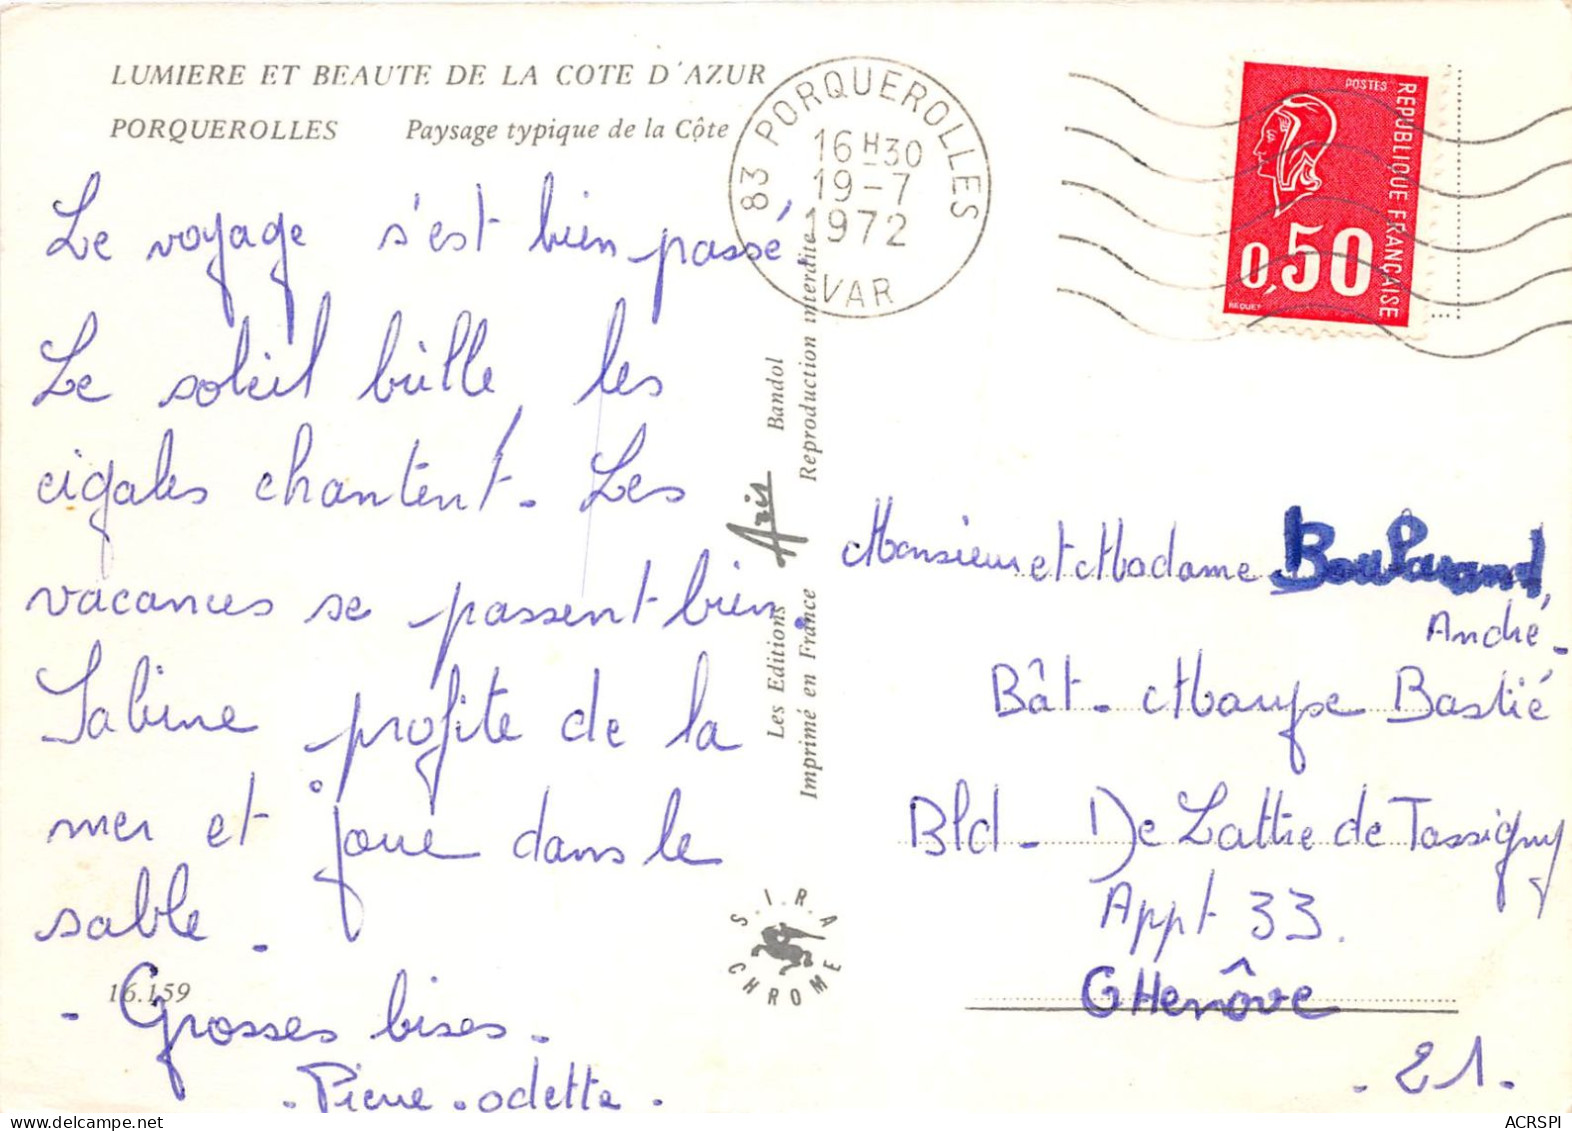 LUMIERE ET BEAUTE DE LA COTE D'AZUR
PORQUEROLLES Paysage typique de la Côte
83 PORQUEROLLES
16H30
19-7
1972
VAR
POSTES
REPUBLIQUE FRANÇAISE
0,50
BEQUET
Le voyage s'est bien passé,
Le soleil brille, les
cigales chantent. Les
vacances se passent bien.
Sabine profite de la
mer et joue dans le
sable.
16.159
- Grosses bises.
- Pierre - odette.
Les Editions Aris Bandol
Imprimé en France Reproduction interdite
S.I.R.A
CHROME
Monsieur et Madame
André -
Bât. Maryse Bastié
Bld - De Lattre de Tassigny
Appt 33.
CHenôve
- 21.
ACRSPI